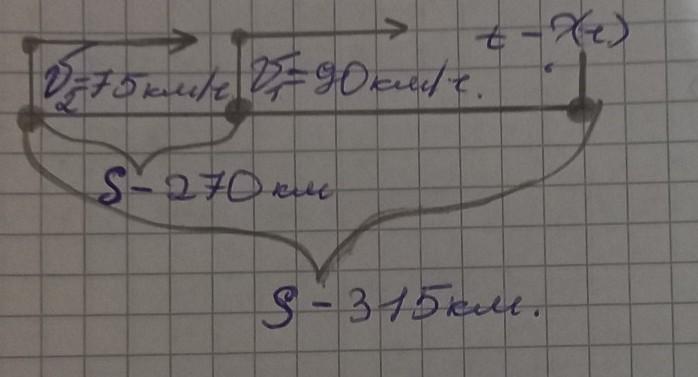 t - ?(ч)
V₂=75км/ч V₁=90км/ч.
S - 270 км
S - 315 км.